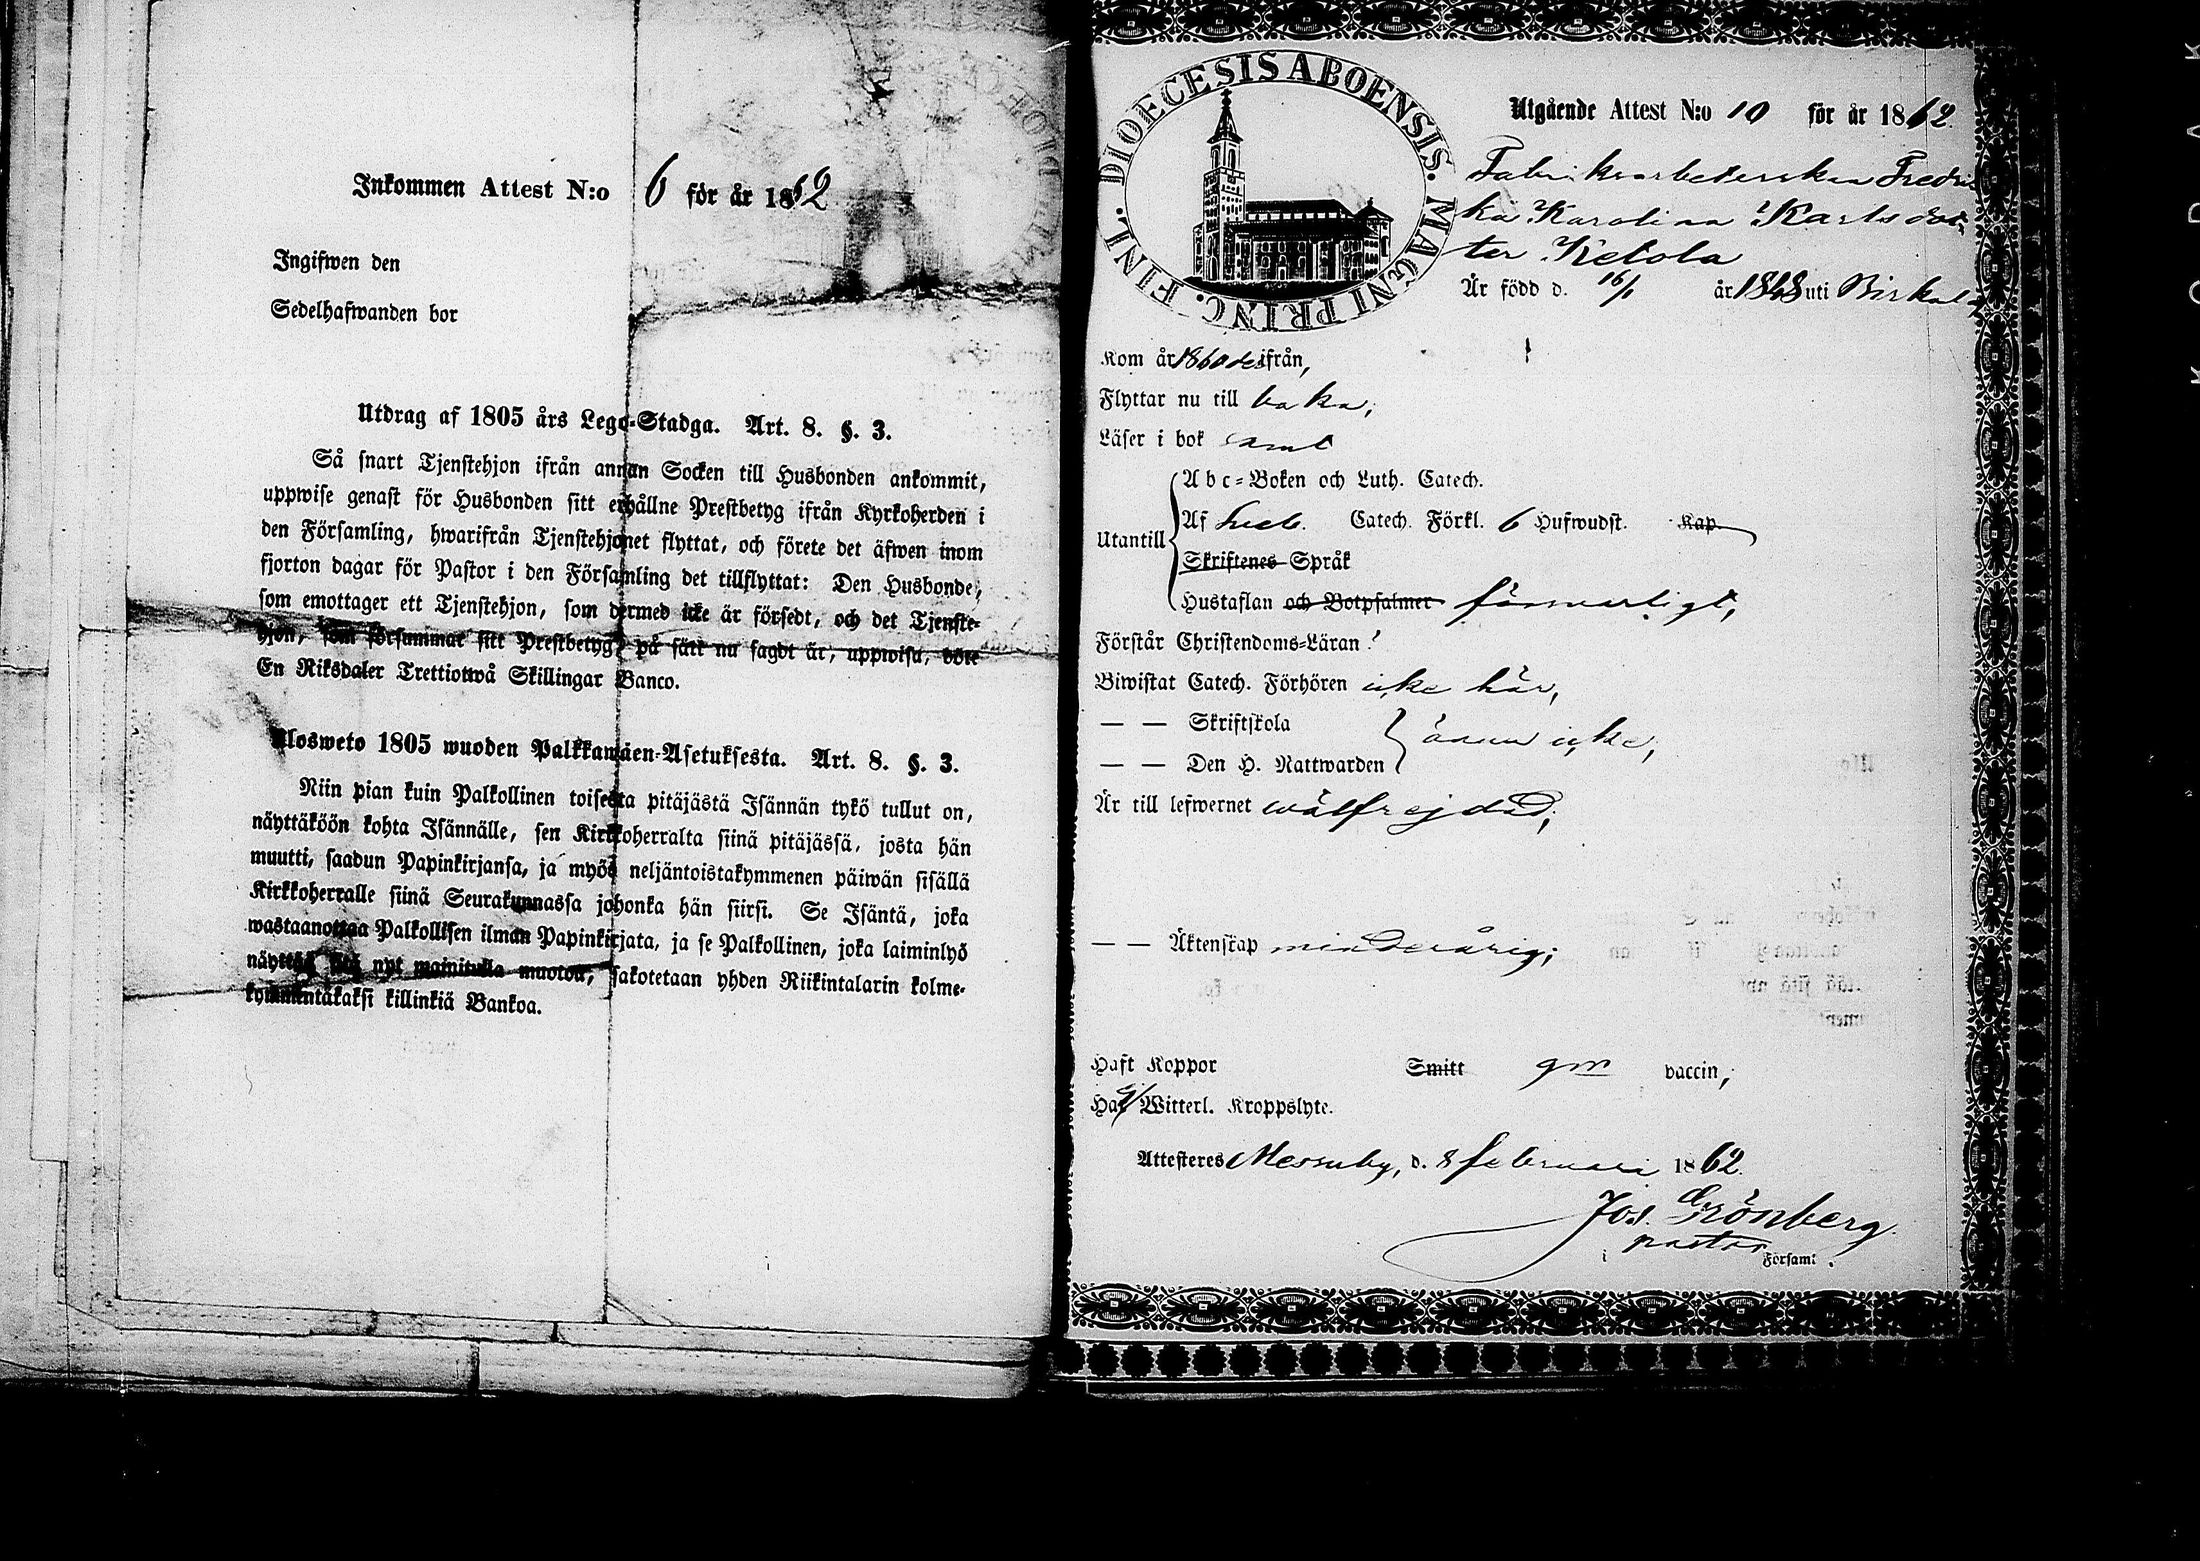 Inkommen Attest N:o 6 för år 1862
Ingifwen den
Sedelhafwanden bor
Utdrag af 1805 års Lego-Stadga. Art. 8. §. 3.
Så snart Tjenstehjon ifrån annan Socken till Husbonden ankommit,
uppwise genast för Husbonden sitt erhållne Prestbetyg ifrån Kyrkoherden i
den Församling, hwarifrån Tjenstehjonet flyttat, och förete det äfwen inom
fjorton dagar för Pastor i den Församling det tillflyttat: Den Husbonde,
som emottager ett Tjenstehjon, som dermed icke är försedt, och det Tjenste-
hjon, som försummar sitt Prestbetyg, på sätt nu sagdt är, uppwisa, böte
En Riksdaler Trettiotwå Skillingar Banco.
Ulosweto 1805 wuoden Palkkawäen-Asetuksesta. Art. 8. §. 3.
Niin pian kuin Palkollinen toisesta pitäjästä Isännän tykö tullut on,
näyttäköön kohta Isännälle, sen Kirkkoherralta siinä pitäjässä, josta hän
muutti, saadun Papinkirjansa, ja myös neljäntoistakymmenen päiwän sisällä
Kirkkoherralle siinä Seurakunnassa johonka hän siirsi. Se Isäntä, joka
wastaanottaa Palkollisen ilman Papinkirjata, ja se Palkollinen, joka laiminlyö
näyttää sitä nyt mainitulla muotoa, sakotetaan yhden Riikintalarin kolme-
kymmentäkaksi killinkiä Bankoa.
DIOECESIS ABOENSIS. MAGNI PRINC. FINL.
Utgående Attest N:o 10 för år 1862.
Fabriksarbeterskan Fredri
ka Karolina Karlsdot-
ter Ketola
Är född d. 16/1 år 1848 uti Birkala,
Kom år 1860 der ifrån,
Flyttar nu till baka,
Läser i bok samt
Utantill
Abc-Boken och Luth. Catech.
Af Sveb. Catech. Förkl. 6 Hufwudst. Kap.
Skriftenes Språk
Hustaflan och Botpsalmer försvarligt,
Förstår Christendoms-Läran
Biwistat Catech. Förhören icke här,
— — Skriftskola
ännu icke,
— — Den H. Nattwarden
Är till lefwernet wälfrejdad,
— — Äktenskap minderårig;
Haft Koppor Smitt gm vaccin,
Har ej Witterl. Kroppslyte.
Attesteras Messuby, d. 8 februari 1862.
Jos. Grönberg.
pastor
i Församl.
KODAK